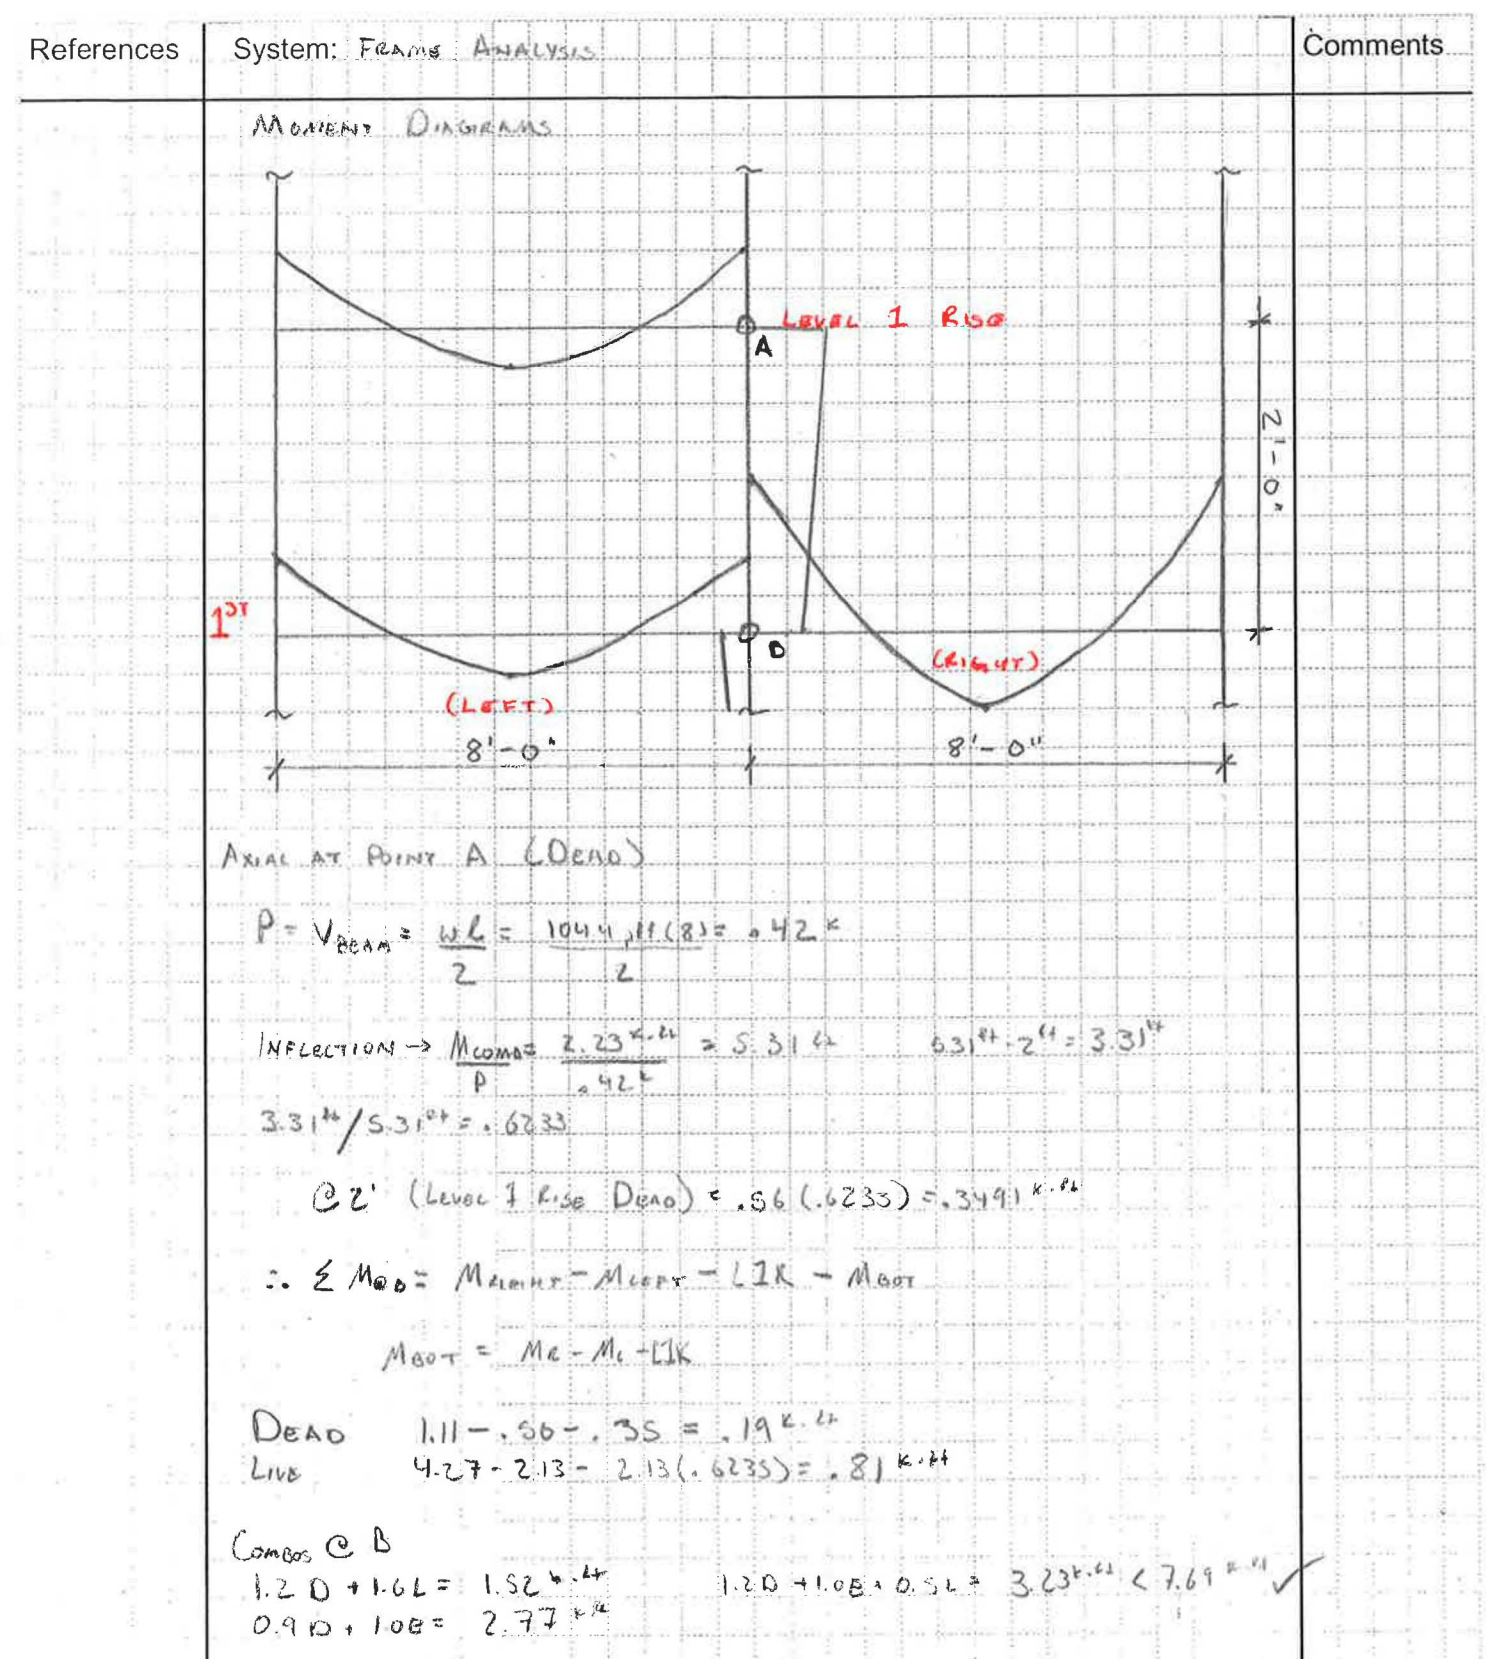 References
System: FRAME ANALYSIS
Comments
MOMENT DIAGRAMS
LEVEL 1 RISE
A
2'-0"
1ST
B
(RIGHT)
(LEFT)
8'-0"
8'-0"
AXIAL AT POINT A (DEAD)
P = VBEAM = wl/2 = (8)/2 = .42 k
INFLECTION → MCOMB/P = 2.23 k·ft/.42 k = 5.31 ft 5.31 ft - 2 ft = 3.31 ft
3.31 ft/5.31 ft = .6233
@ 2' (LEVEL 1 RISE DEAD) = .56 (.6233) = .3491 k·ft
∴ Σ M@B = MRIGHT - MLEFT - L1R - MBOT
MBOT = MR - ML - L1R
DEAD 1.11 - .56 - .35 = .19 k·ft
LIVE 4.27 - 2.13 - 2.13(.6233) = .81 k·ft
COMBOS @ B
1.2D + 1.6L = 1.52 k·ft 1.2D + 1.0E + 0.5L = 3.23 k·ft < 7.69 k·ft ✓
0.9D + 1.0E = 2.77 k·ft